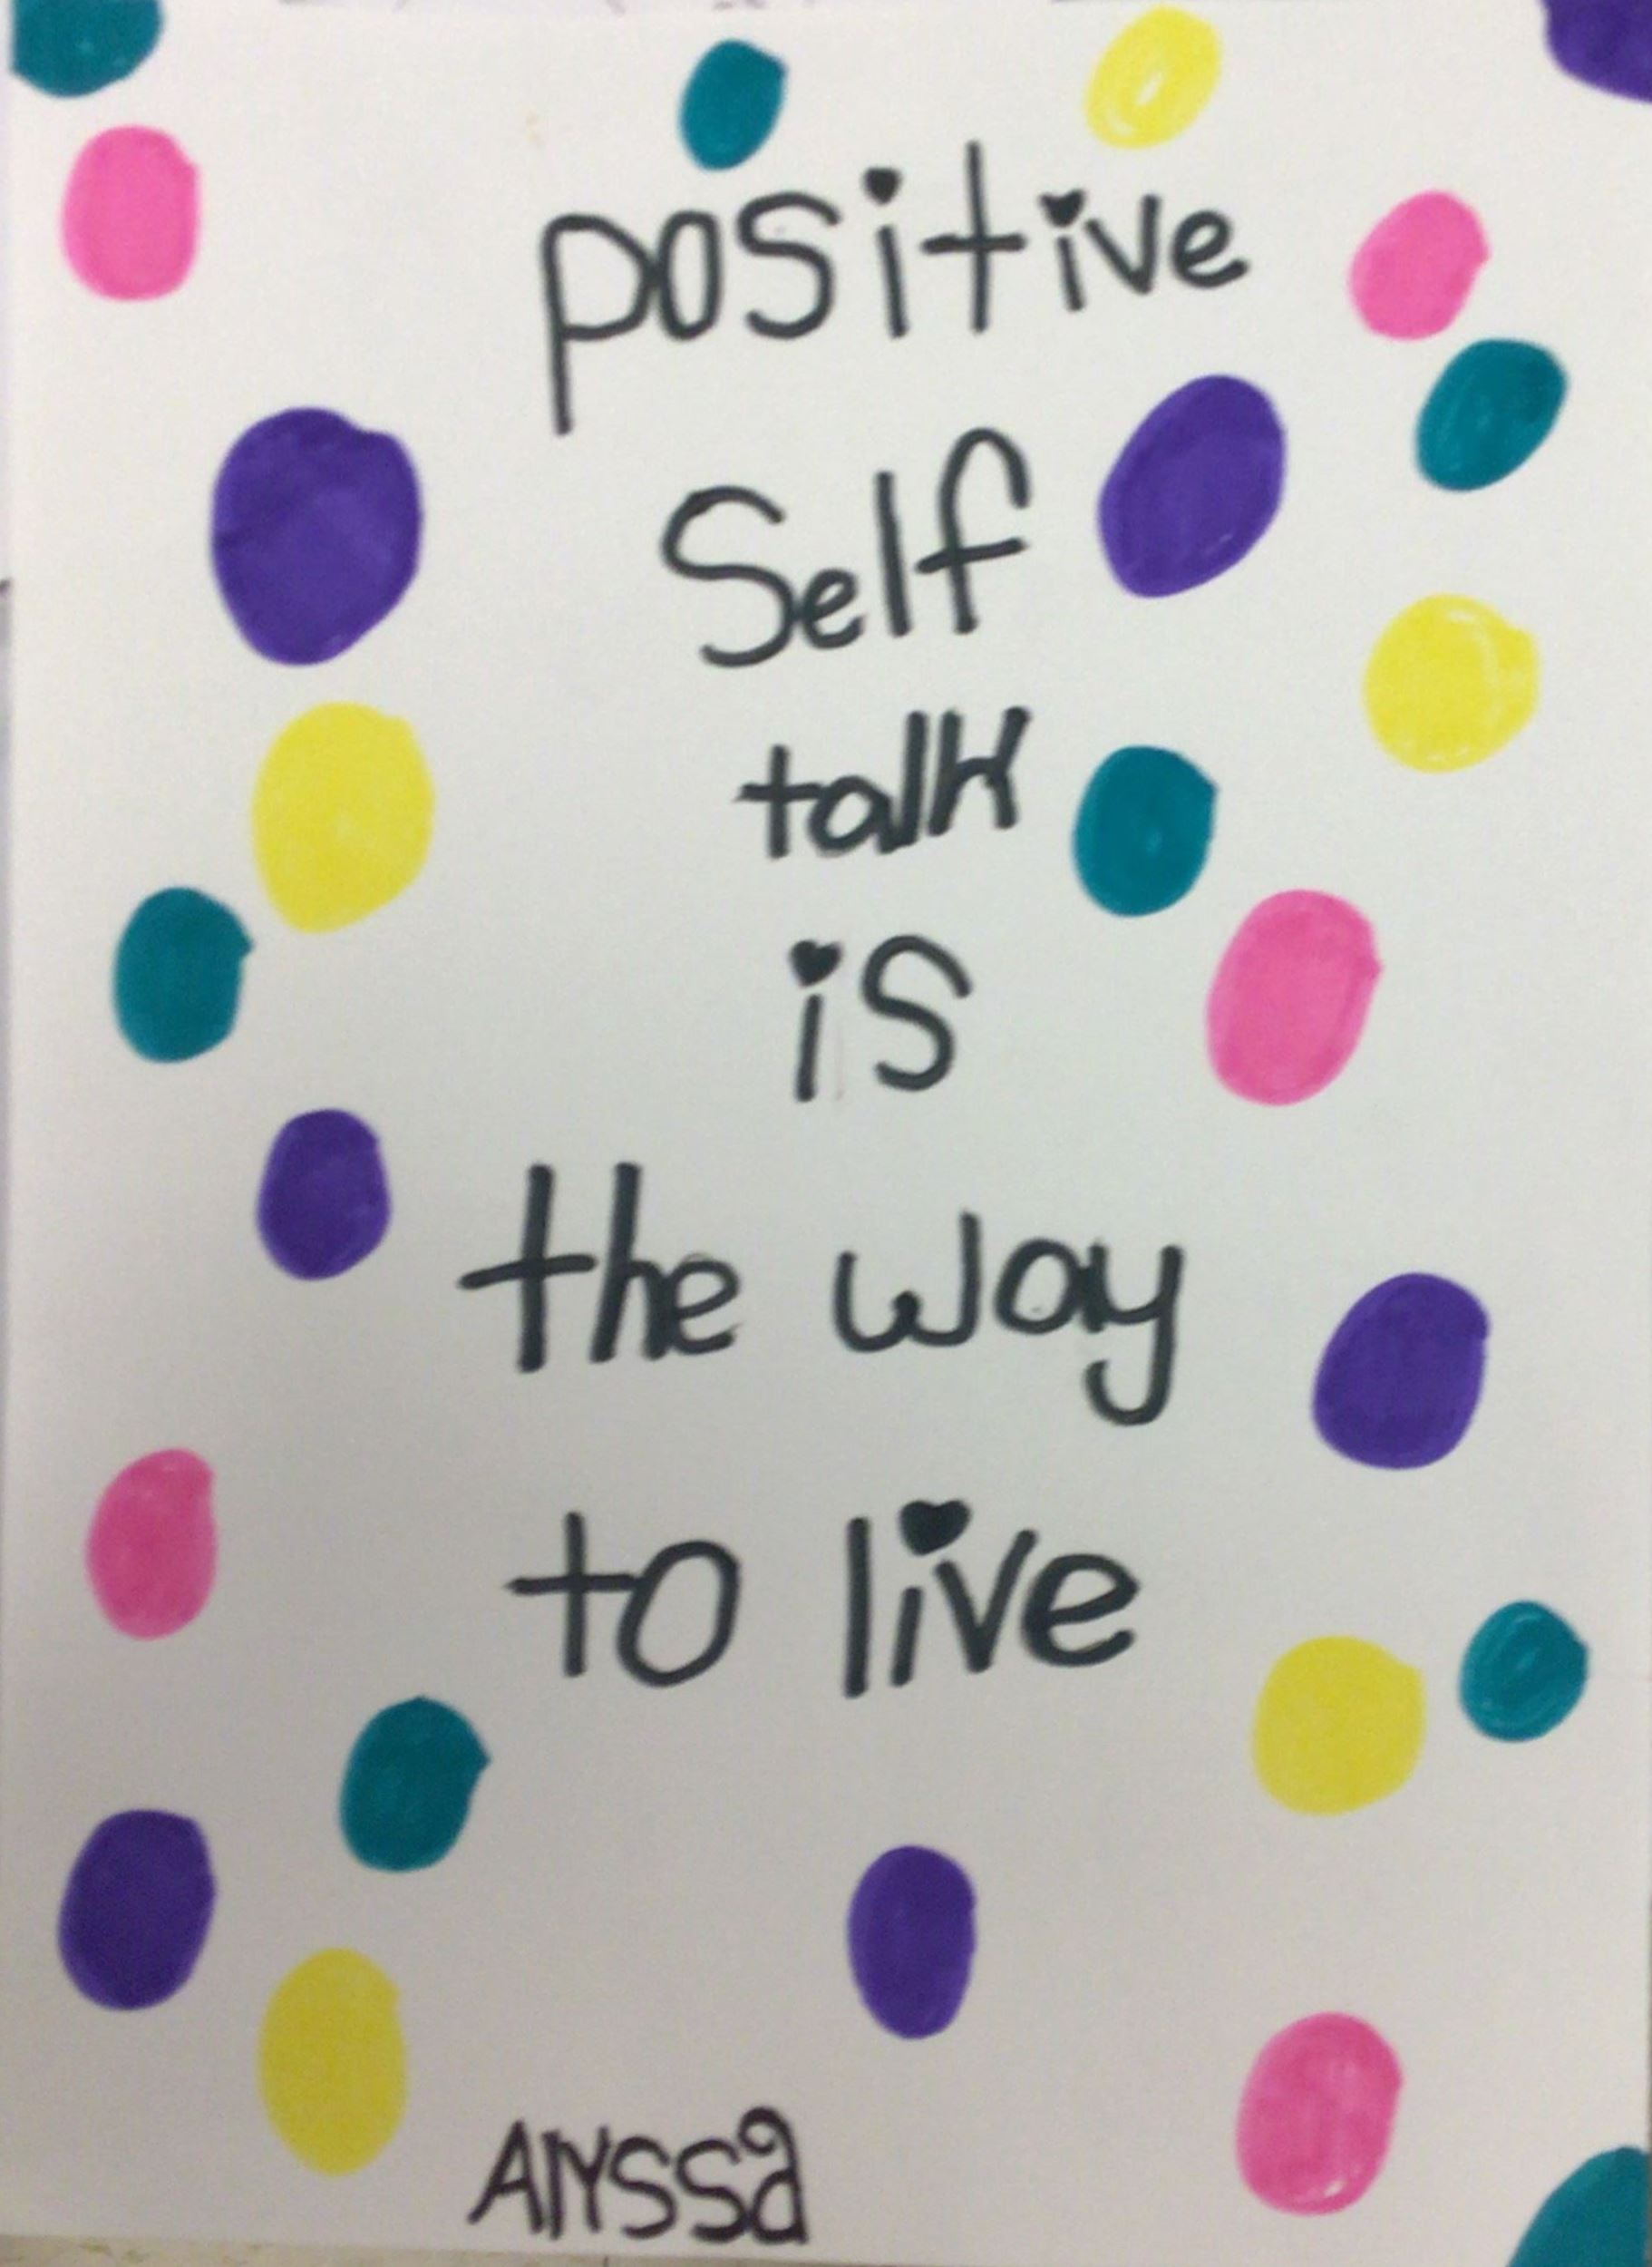 positive
Self
talk
is
the way
to live
Alyssa